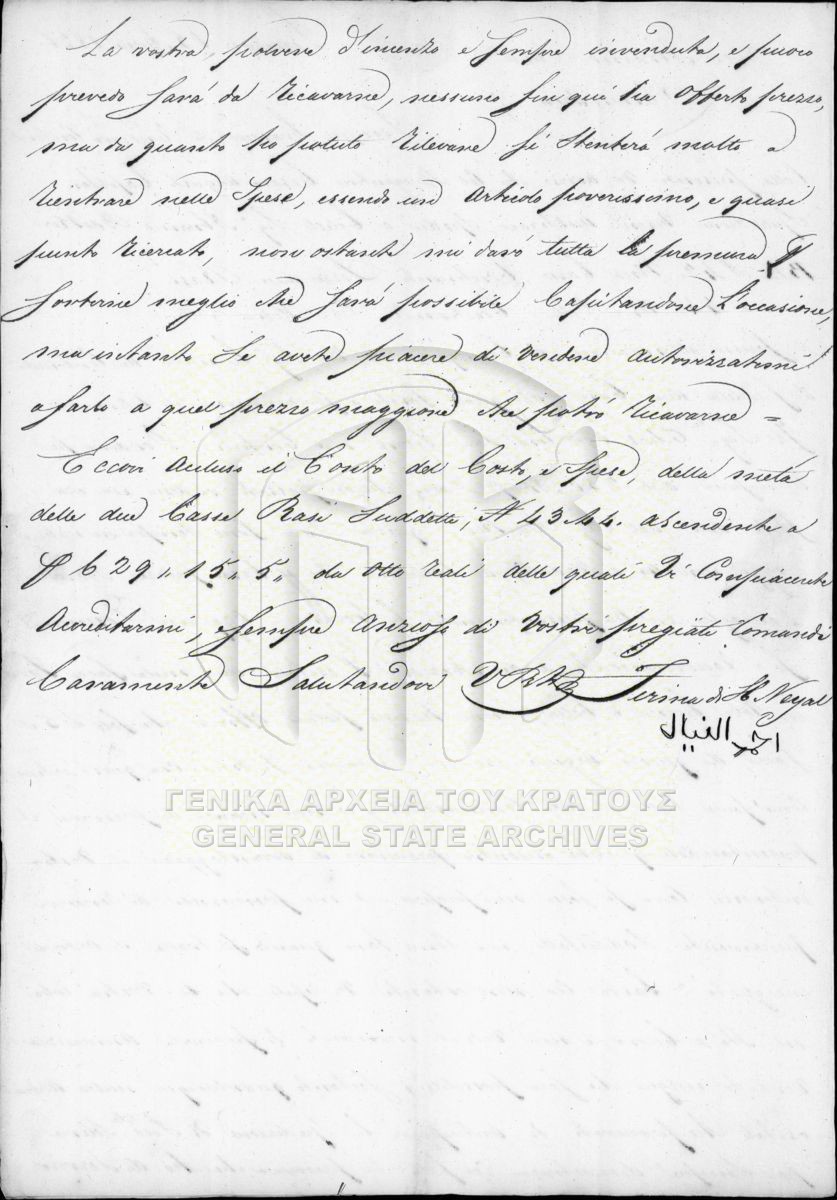 La vostra polvere d'incenzo e sempre invenduta, e puoco
prevedo sará da ricavarne, nessuno fin qui ha offerto prezzo,
ma da quanto ho potuto rilevare si stenterá molto a
rientrare nelle spese, essendo un articolo poverissimo, e quasi
punto ricercato, non ostante mi daró tutta la premura
sortirne meglio che sará possibile Capitandone l'occasione,
ma intanto se avete piacere di vendere autorizzatemi
a farlo a quel prezzo maggiore che potró ricavarne =
Eccovi accluso il Conto del Costo, e spese, della metá
delle due Casse Rasi Suddette, N 43.44. ascendente a
P 629,, 15,, 5,, da otto reali delle quali Vi Compiacerete
Acreditarmi, e sempre anzioso di vostri pregiati Comandi
Caramente Salutandovi Firma di H. Neyal
احمد النيال
ΓΕΝΙΚΑ ΑΡΧΕΙΑ ΤΟΥ ΚΡΑΤΟΥΣ
GENERAL STATE ARCHIVES